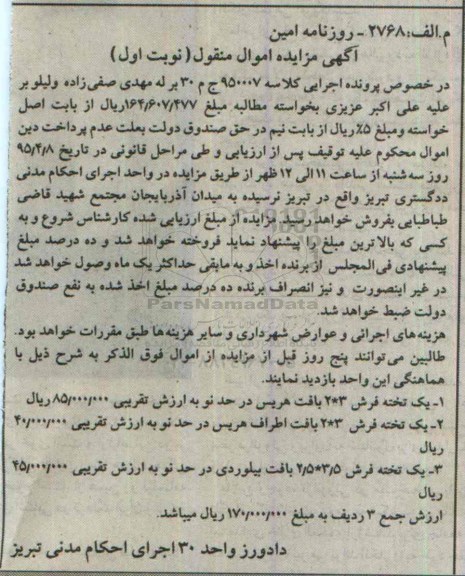 م.الف:۲۷۶۸ - روزنامه امین
آگهی مزایده اموال منقول (نوبت اول)
در خصوص پرونده اجرایی کلاسه ۹۵۰۰۰۷ ج م ۳۰ بر له مهدی صفی‌زاده ولیلو بر
علیه علی اکبر عزیزی بخواسته مطالبه مبلغ ۱۶۴,۶۰۷,۴۷۷ریال از بابت اصل
خواسته ومبلغ ۵٪ ریال از بابت نیم در حق صندوق دولت بعلت عدم پرداخت دین
اموال محکوم علیه توقیف پس از ارزیابی و طی مراحل قانونی در تاریخ ۹۵/۴/۸
روز سه‌شنبه از ساعت ۱۱ الی ۱۲ ظهر از طریق مزایده در واحد اجرای احکام مدنی
ددگستری تبریز واقع در تبریز نرسیده به میدان آذربایجان مجتمع شهید قاضی
طباطبایی بفروش خواهد رسید. مزایده از مبلغ ارزیابی شده کارشناس شروع و به
کسی که بالاترین مبلغ را پیشنهاد نماید فروخته خواهد شد و ده درصد مبلغ
پیشنهادی فی‌المجلس از برنده اخذ و به مابقی حداکثر یک ماه وصول خواهد شد
در غیر اینصورت و نیز انصراف برنده ده درصد مبلغ اخذ شده به نفع صندوق
دولت ضبط خواهد شد.
ParsNamadData
هزینه‌های اجرائی و عوارض شهرداری و سایر هزینه‌ها طبق مقررات خواهد بود.
طالبین می‌توانند پنج روز قبل از مزایده از اموال فوق الذکر به شرح ذیل با
هماهنگی این واحد بازدید نمایند.
۱- یک تخته فرش ۳*۲ بافت هریس در حد نو به ارزش تقریبی ۸۵/۰۰۰/۰۰۰ ریال
۲- یک تخته فرش ۳*۲ بافت اطراف هریس در حد نو به ارزش تقریبی ۴۰/۰۰۰/۰۰۰
ریال
۳- یک تخته فرش ۳/۵*۲/۵ بافت بیلوردی در حد نو به ارزش تقریبی ۴۵/۰۰۰/۰۰۰
ریال
ارزش جمع ۳ ردیف به مبلغ ۱۷۰/۰۰۰/۰۰۰ ریال میباشد.
دادورز واحد ۳۰ اجرای احکام مدنی تبریز